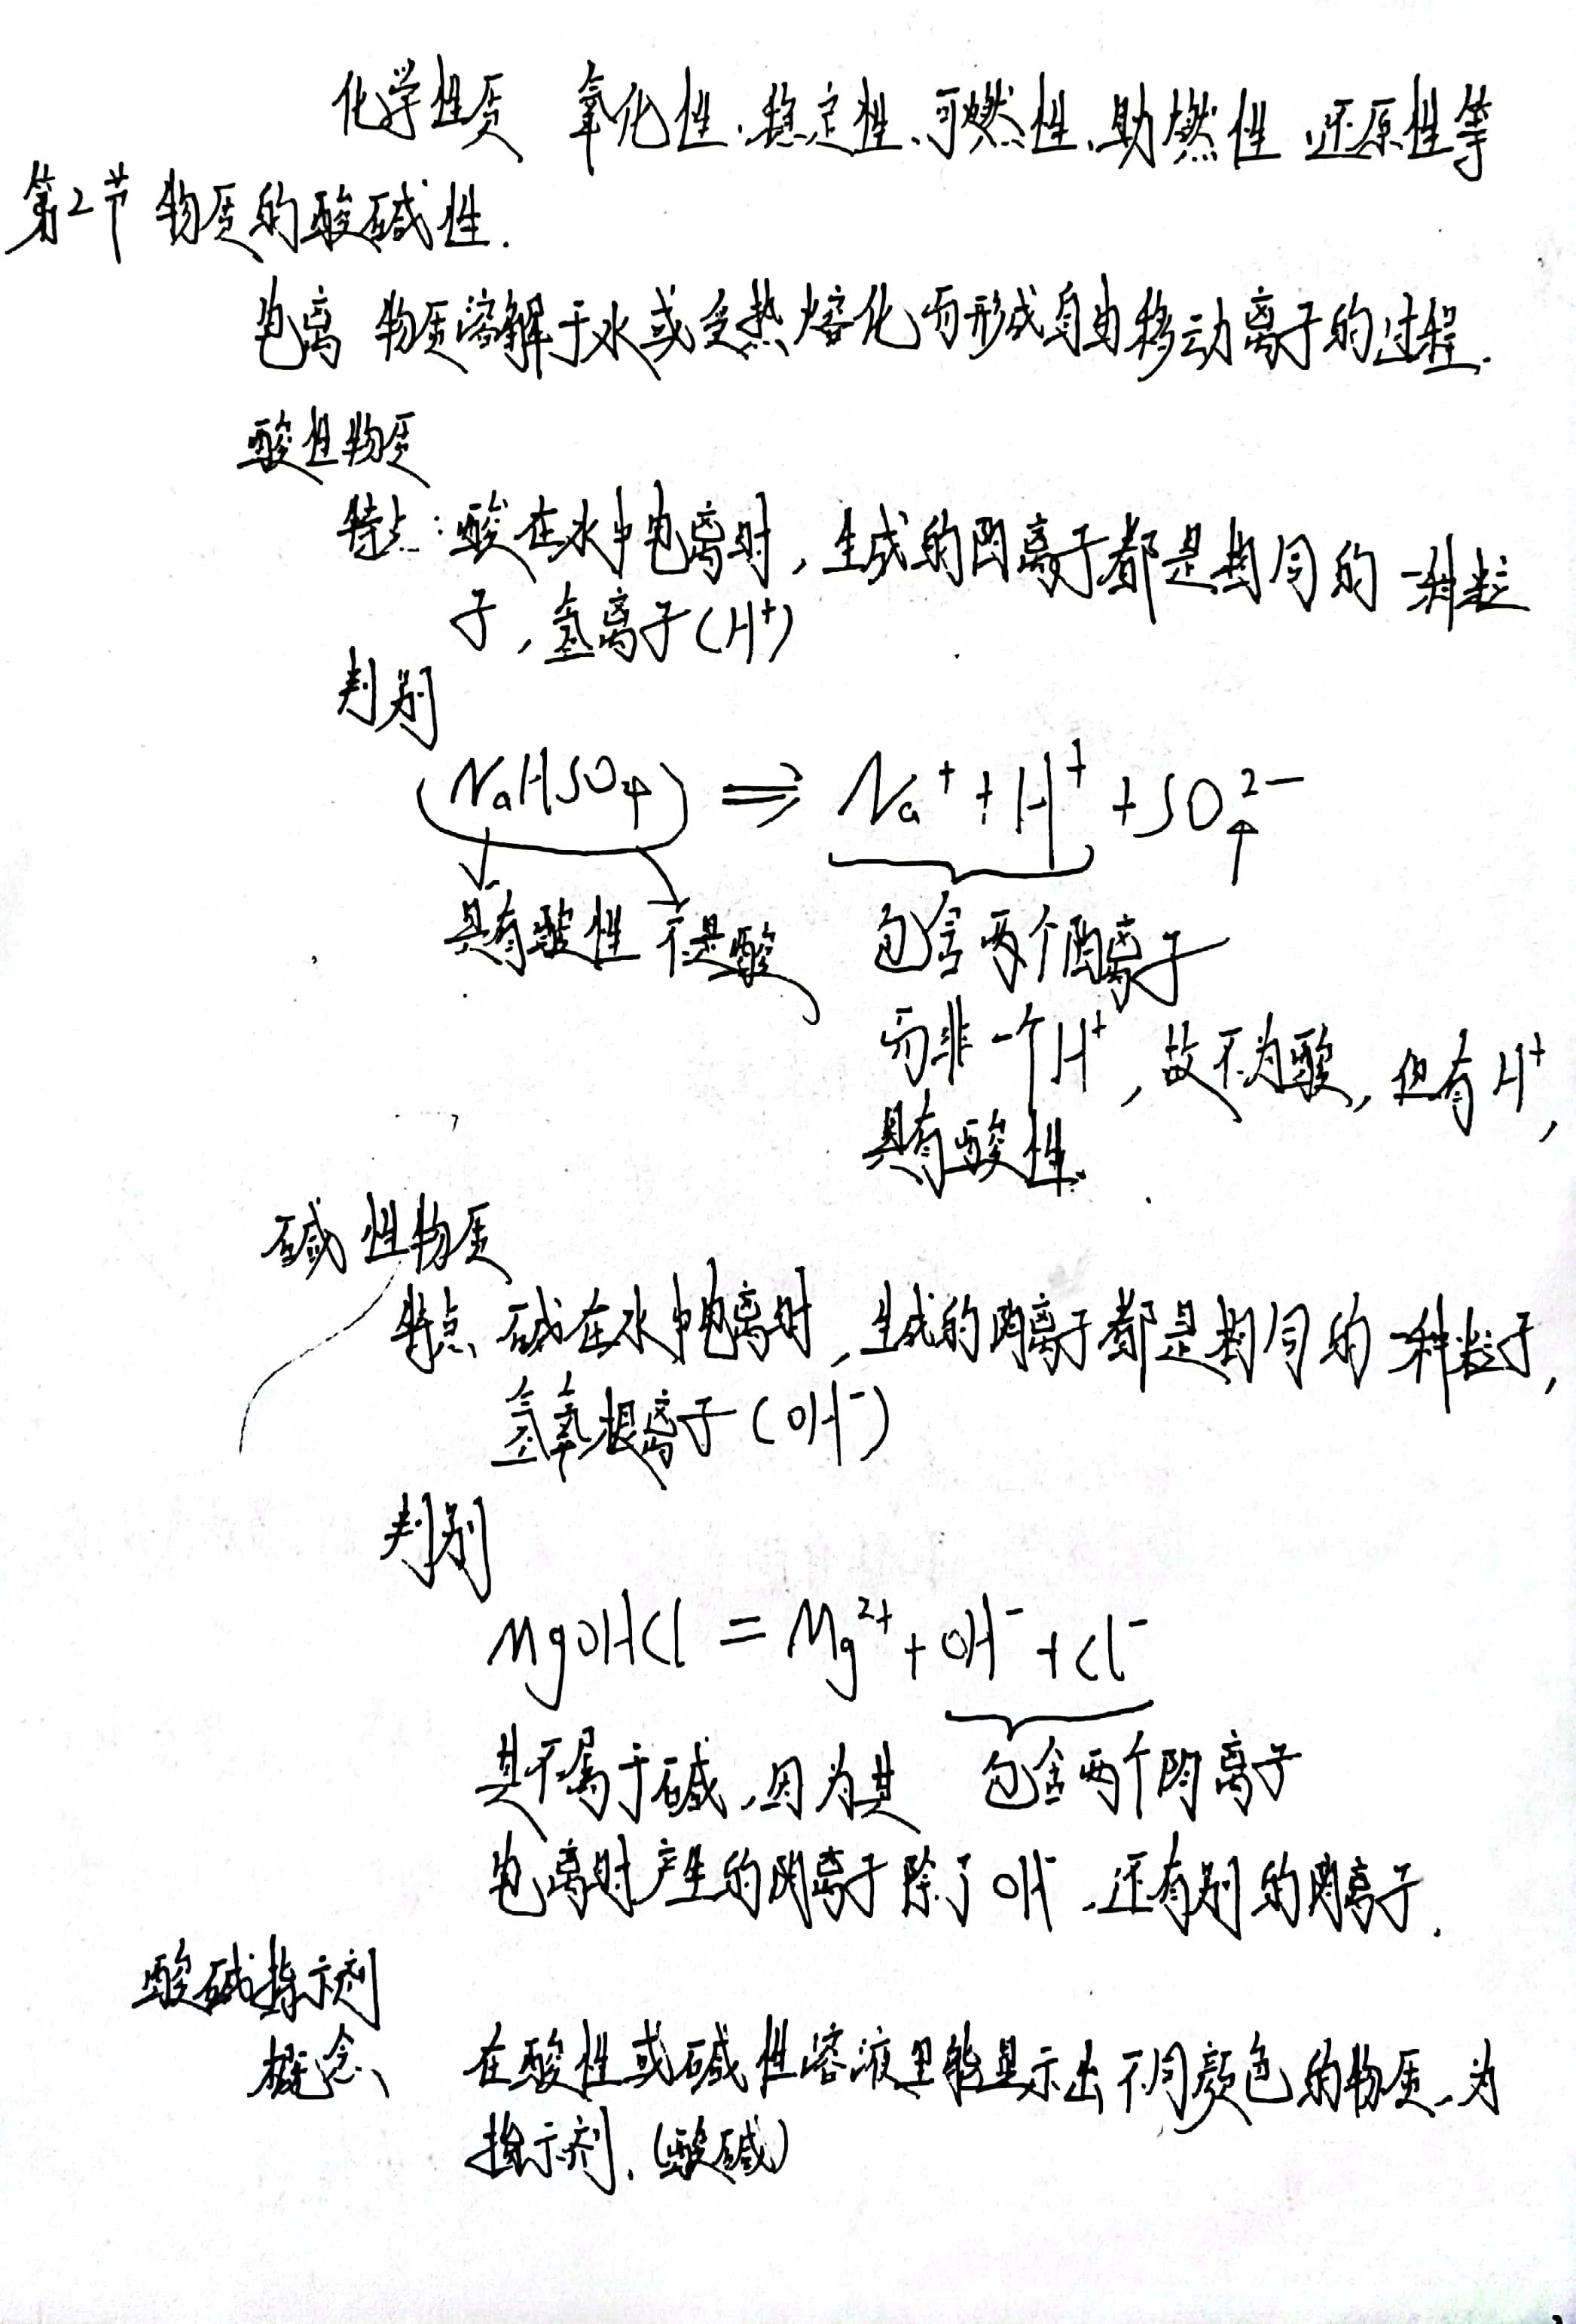 化学性质 氧化性、稳定性、可燃性、助燃性 还原性等
第2节 物质的酸碱性.
电离 物质溶解于水或受热熔化而形成自由移动离子的过程.
酸性物质
特点:酸在水中电离时,生成的阳离子都是相同的一种粒
子,氢离子(H⁺)
判别
(NaHSO₄) ⇒ Na⁺+H⁺+SO₄²⁻
具有酸性 不是酸 包含两个阳离子
而非一个H⁺,故不为酸,但有H⁺,
具有酸性.
碱性物质
特点 碱在水中电离时,生成的阴离子都是相同的一种粒子,
氢氧根离子(OH⁻)
判别
MgOHCl = Mg²⁺+OH⁻+Cl⁻
其不属于碱,因为其 包含两个阴离子
电离时产生的阴离子除了OH⁻,还有别的阴离子.
酸碱指示剂
概念、 在酸性或碱性溶液里能显示出不同颜色的物质,为
指示剂.(酸碱)